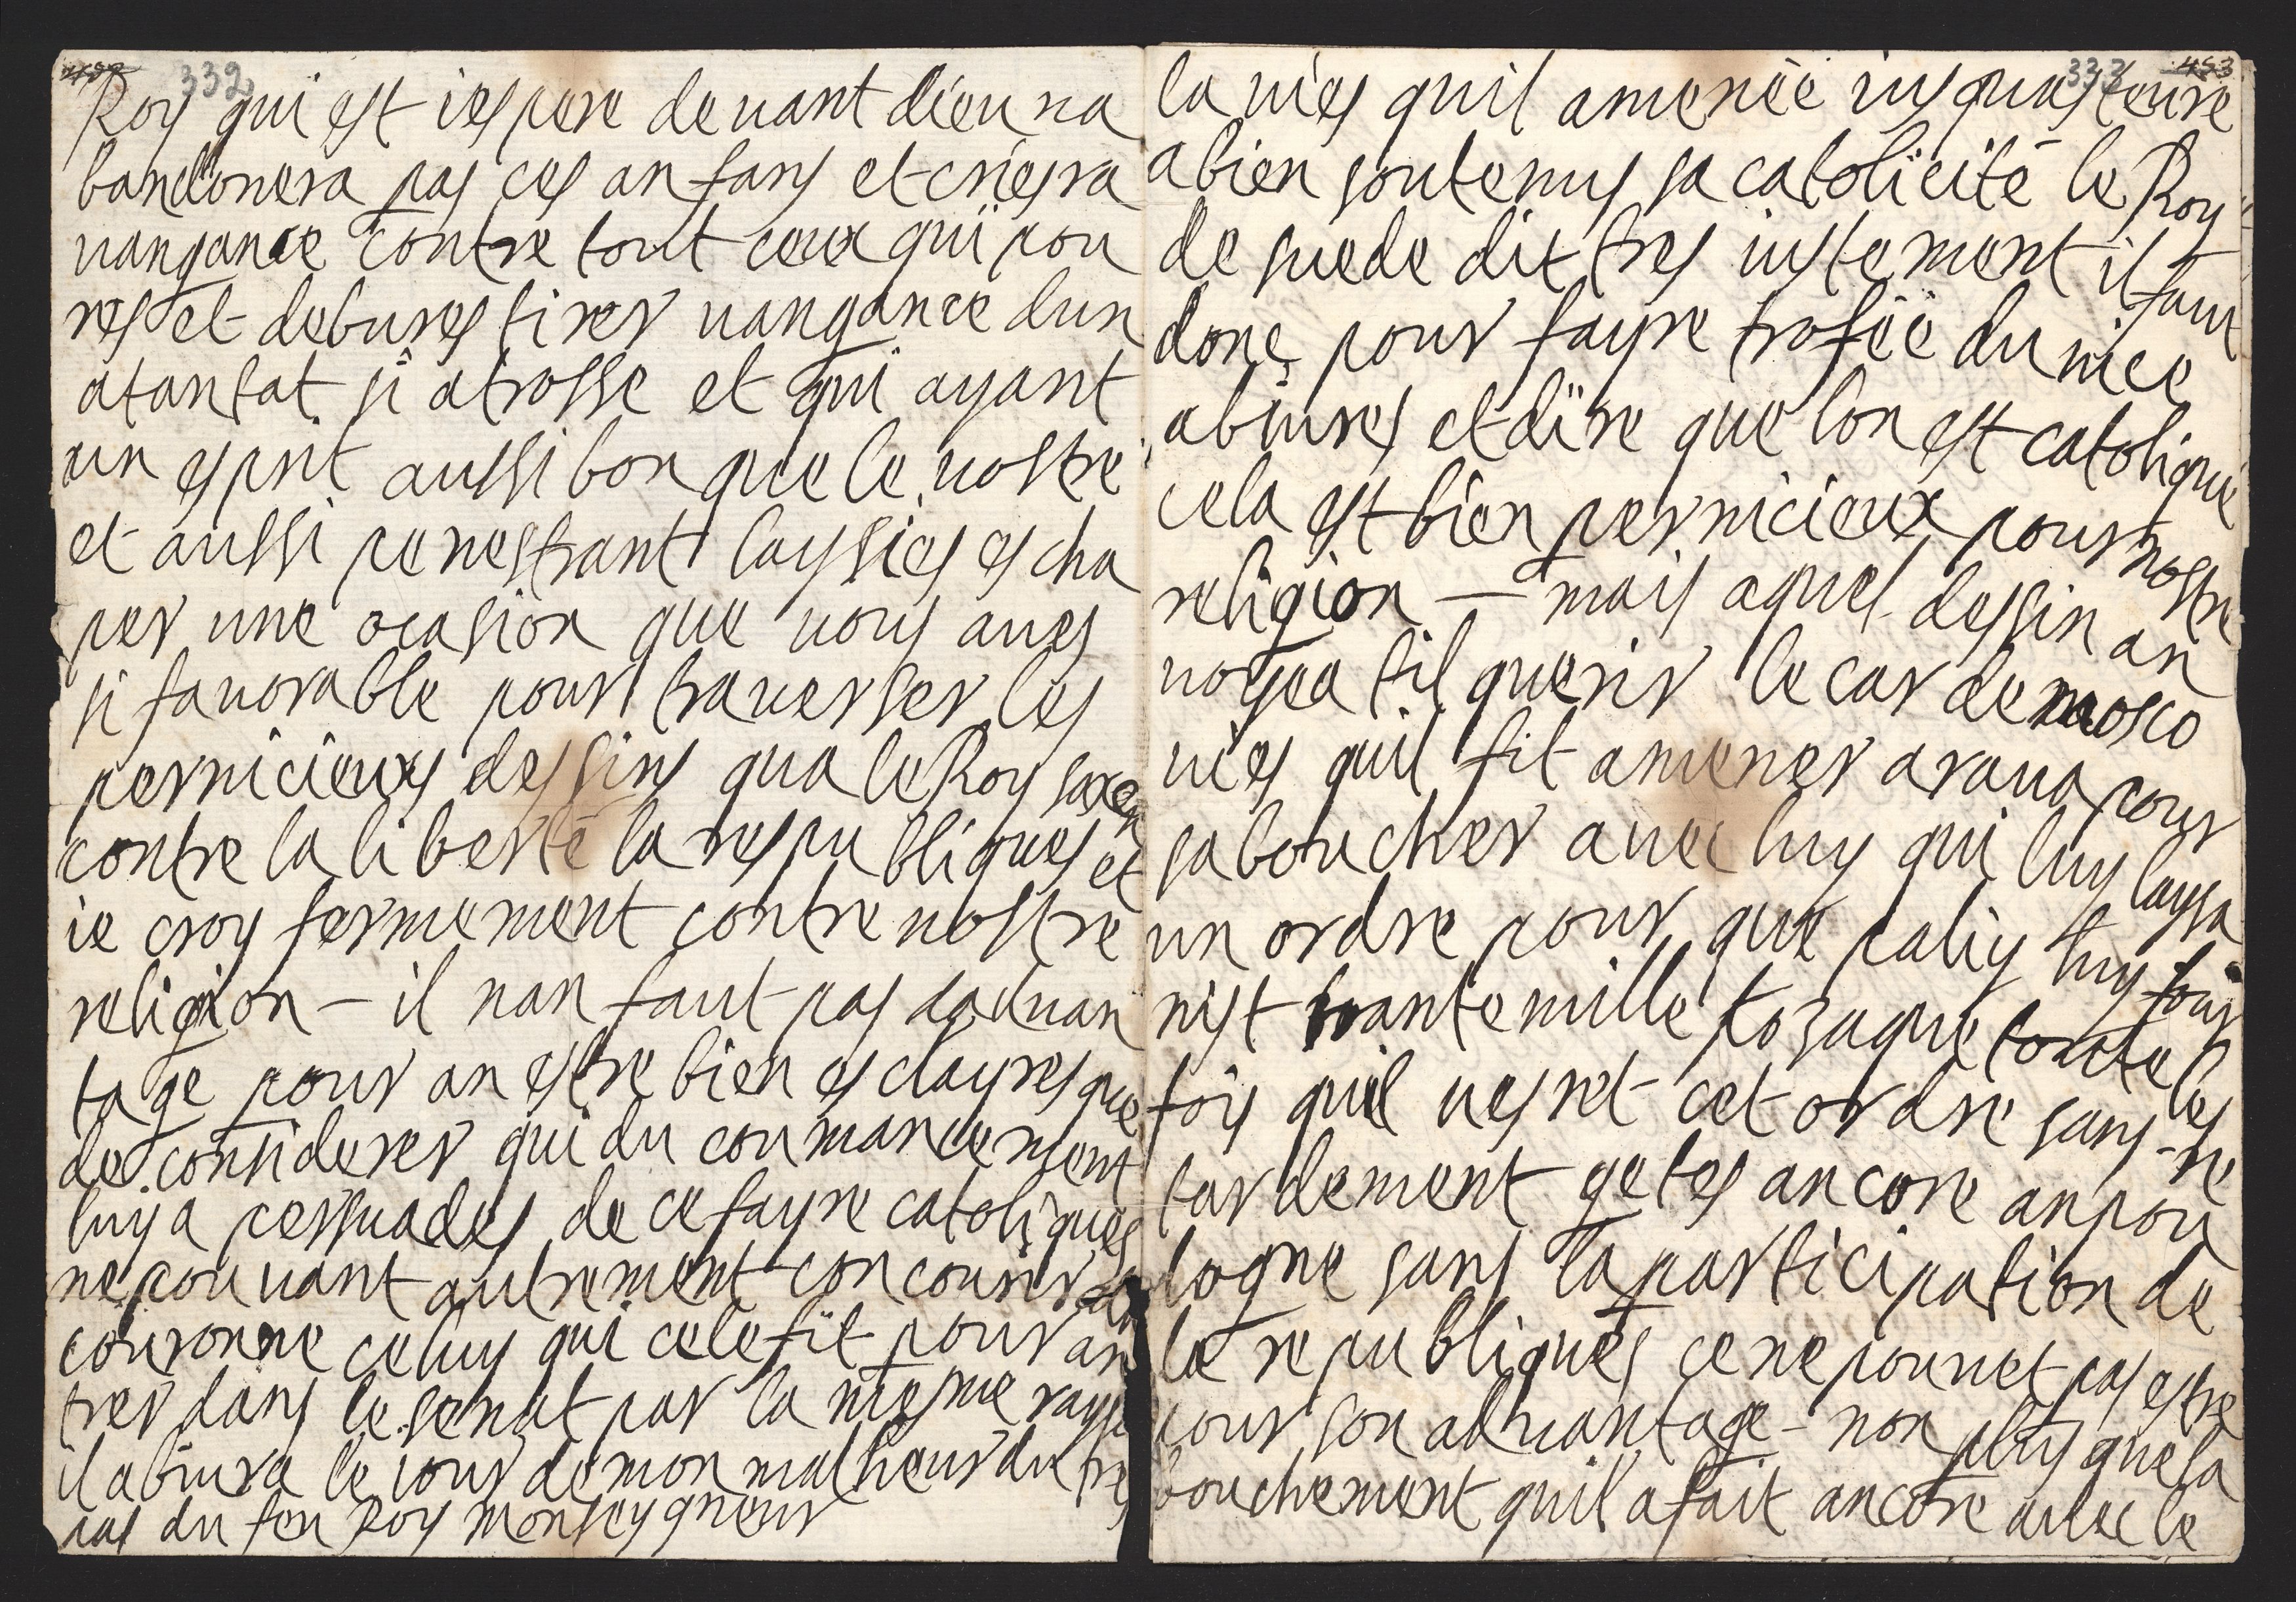 332
Roy qui est iespere deuant dieu na
bandonera pas ces anfans et criesra
uangance contre tout ceux qui pou
res et debures tirer uangance dun
atantat si atrosse et qui ayant
un esprit aussi bon que le uostre
et aussi penestrant laysies escha
per une ocasion que uous aues
si fauorable pour trauerser les
pernicieux dessins qua le Roy saxen
contre la liberté la respubliques et
ie croy fermement contre nostre
religion – il nan faut pas daduan
tage pour an estre bien esclayres que
de considerer qui du coumancement
luy a perssuades de ce fayre catoliques
ne pouuant autrement concourir a la
couronne celuy qui cele fit pour an
trer dans le senat par la mesme rayso
il abiura le iour de mon malheur du tres
pas du feu Roy monseygneur
333 453
la uies quil amenée iusquasteure
a bien soutenus sa catolicité le Roy
de suede dit tres iustement il faut
donc pour fayre trofée du uice
abiures et dire que lon est catolique
cela est bien pernicieux pour nostre
religion – mais aquel dessin an
uoyea til querir le car de mosco
uies quil fit amener araua pour
saboucher auec luy qui luy laysa
un ordre pour que paliy luy four
nist trante mille kosaque toute les
fois quil uesret cet ordre sans re
tardement getes ancore anpou
logne sans la participation de
la republiques ce ne pouuet pas estre
pour son aduantage – non plus que la
bouchement quil a fait ancore auec le